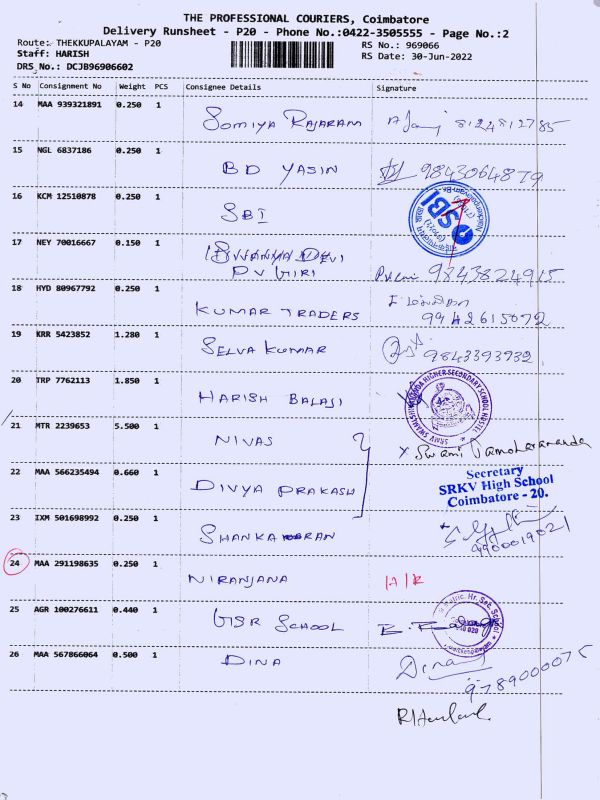 THE PROFESSIONAL COURIERS, Coimbatore
Delivery Runsheet - P20 - Phone No.:0422-3505555 - Page No.:2
Route: THEKKUPALAYAM - P20
RS No.: 969066
Staff: HARISH
RS Date: 30-Jun-2022
DRS No.: DCJB96906602
S No Consignment No Weight PCS Consignee Details Signature
14 MAA 939321891 0.250 1 SOMIYA RAJARAM 8124812785
15 NGL 6837186 0.250 1 BD YASIN 9843064879
16 KCM 12510878 0.250 1 SBI SBI
17 NEY 70016667 0.150 1 DEVI
PV GIRI 9843824915
18 HYD 80967792 0.250 1 KUMAR TRADERS 9942615072
19 KRR 5423852 1.280 1 SELVA KUMAR 9843393732
20 TRP 7762113 1.850 1 HARISH BALAJI HIGHER SECONDARY SCHOOL HOSTEL
21 MTR 2239653 5.500 1 NIVAS x Swami
22 MAA 566235494 0.660 1 DIVYA PRAKASH
Secretary
SRKV High School
Coimbatore - 20.
23 IXM 501698992 0.250 1 SHANKARAN 9900019021
24 MAA 291198635 0.250 1 NIRANJANA H/R
25 AGR 100276611 0.440 1 GSR SCHOOL Matric. Hr. Sec. School
26 MAA 567866064 0.500 1 DINA Dina
9789000075